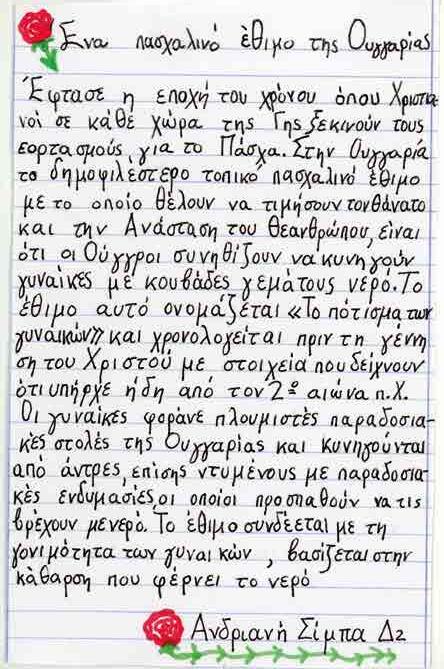 Ένα πασχαλινό έθιμο της Ουγγαρίας
Έφτασε η εποχή του χρόνου όπου Χριστια
νοί σε κάθε χώρα της Γης ξεκινούν τους
εορτασμούς, για το Πάσχα. Στην Ουγγαρία
το δημοφιλέστερο τοπικό πασχαλινό έθιμο
με το οποίο θέλουν να τιμήσουν τον θάνατο
και την Ανάσταση του Θεανθρώπου, είναι
ότι οι Ούγγροι συνηθίζουν να κυνηγούν
γυναίκες με κουβάδες γεμάτους νερό. Το
έθιμο αυτό ονομάζεται «Το πότισμα των
γυναικών» και χρονολογείται πριν τη γέννη
ση του Χριστού με στοιχεία που δείχνουν
ότι υπήρχε ήδη από τον 2ο αιώνα π.Χ.
Οι γυναίκες φοράνε πλουμιστές παραδοσια-
κές στολές της Ουγγαρίας και κυνηγούνται
από άντρες, επίσης ντυμένους με παραδοσια-
κές ενδυμασίες, οι οποίοι προσπαθούν να τις
βρέχουν με νερό. Το έθιμο συνδέεται με τη
γονιμότητα των γυναικών, βασίζεται στην
κάθαρση που φέρνει το νερό
Ανδριανή Σίμπα Δ2